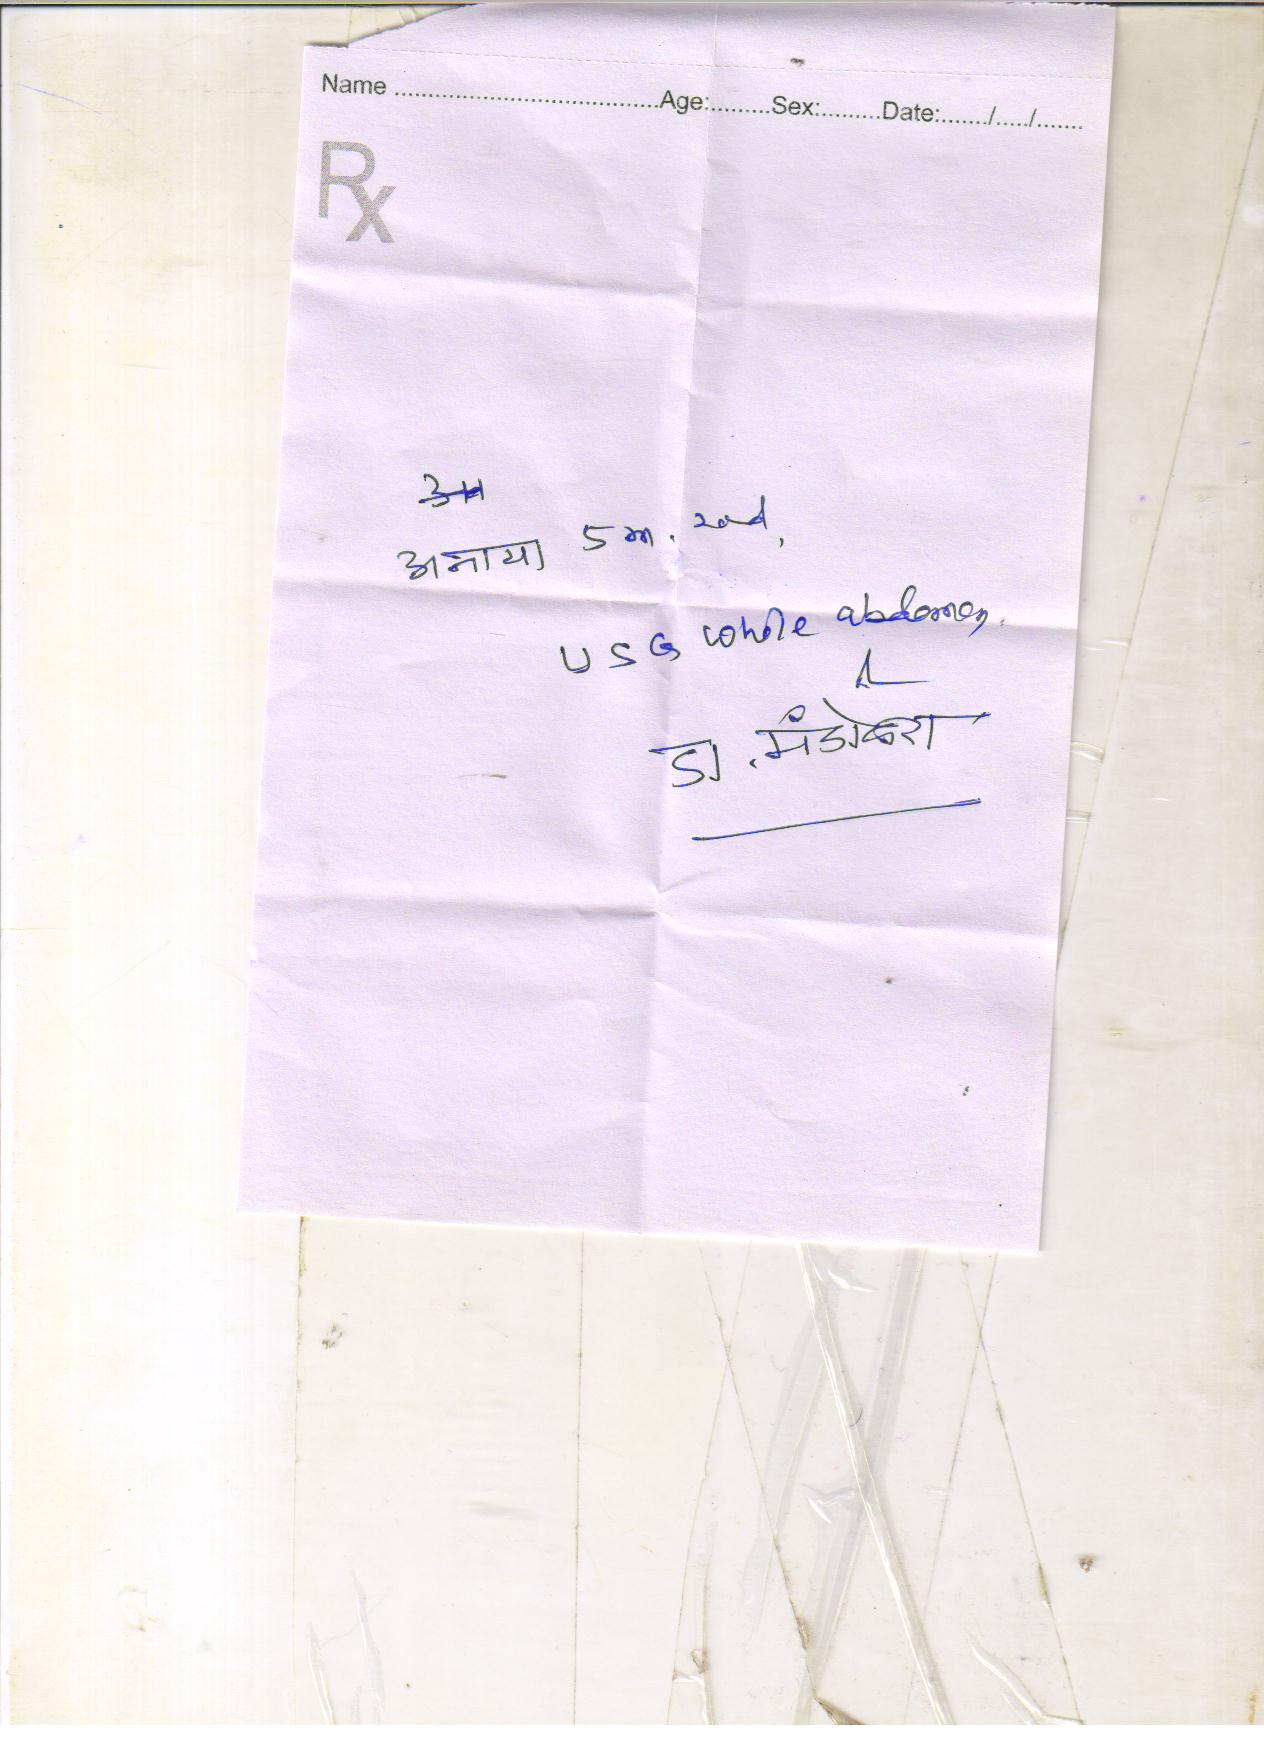 Name ........................................Age:.........Sex:.........Date:......./...../.......
Rx
अनाया 5 m.
USG whole abdomen.
डा. मंडोकरा